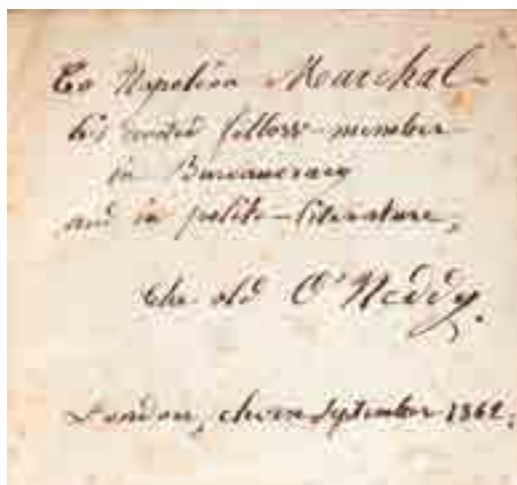 To Napoléon Marchal
his devoted fellow-member
in Bureaucracy
and in polite-literature,
the old O'Neddy.
London, september 1862.